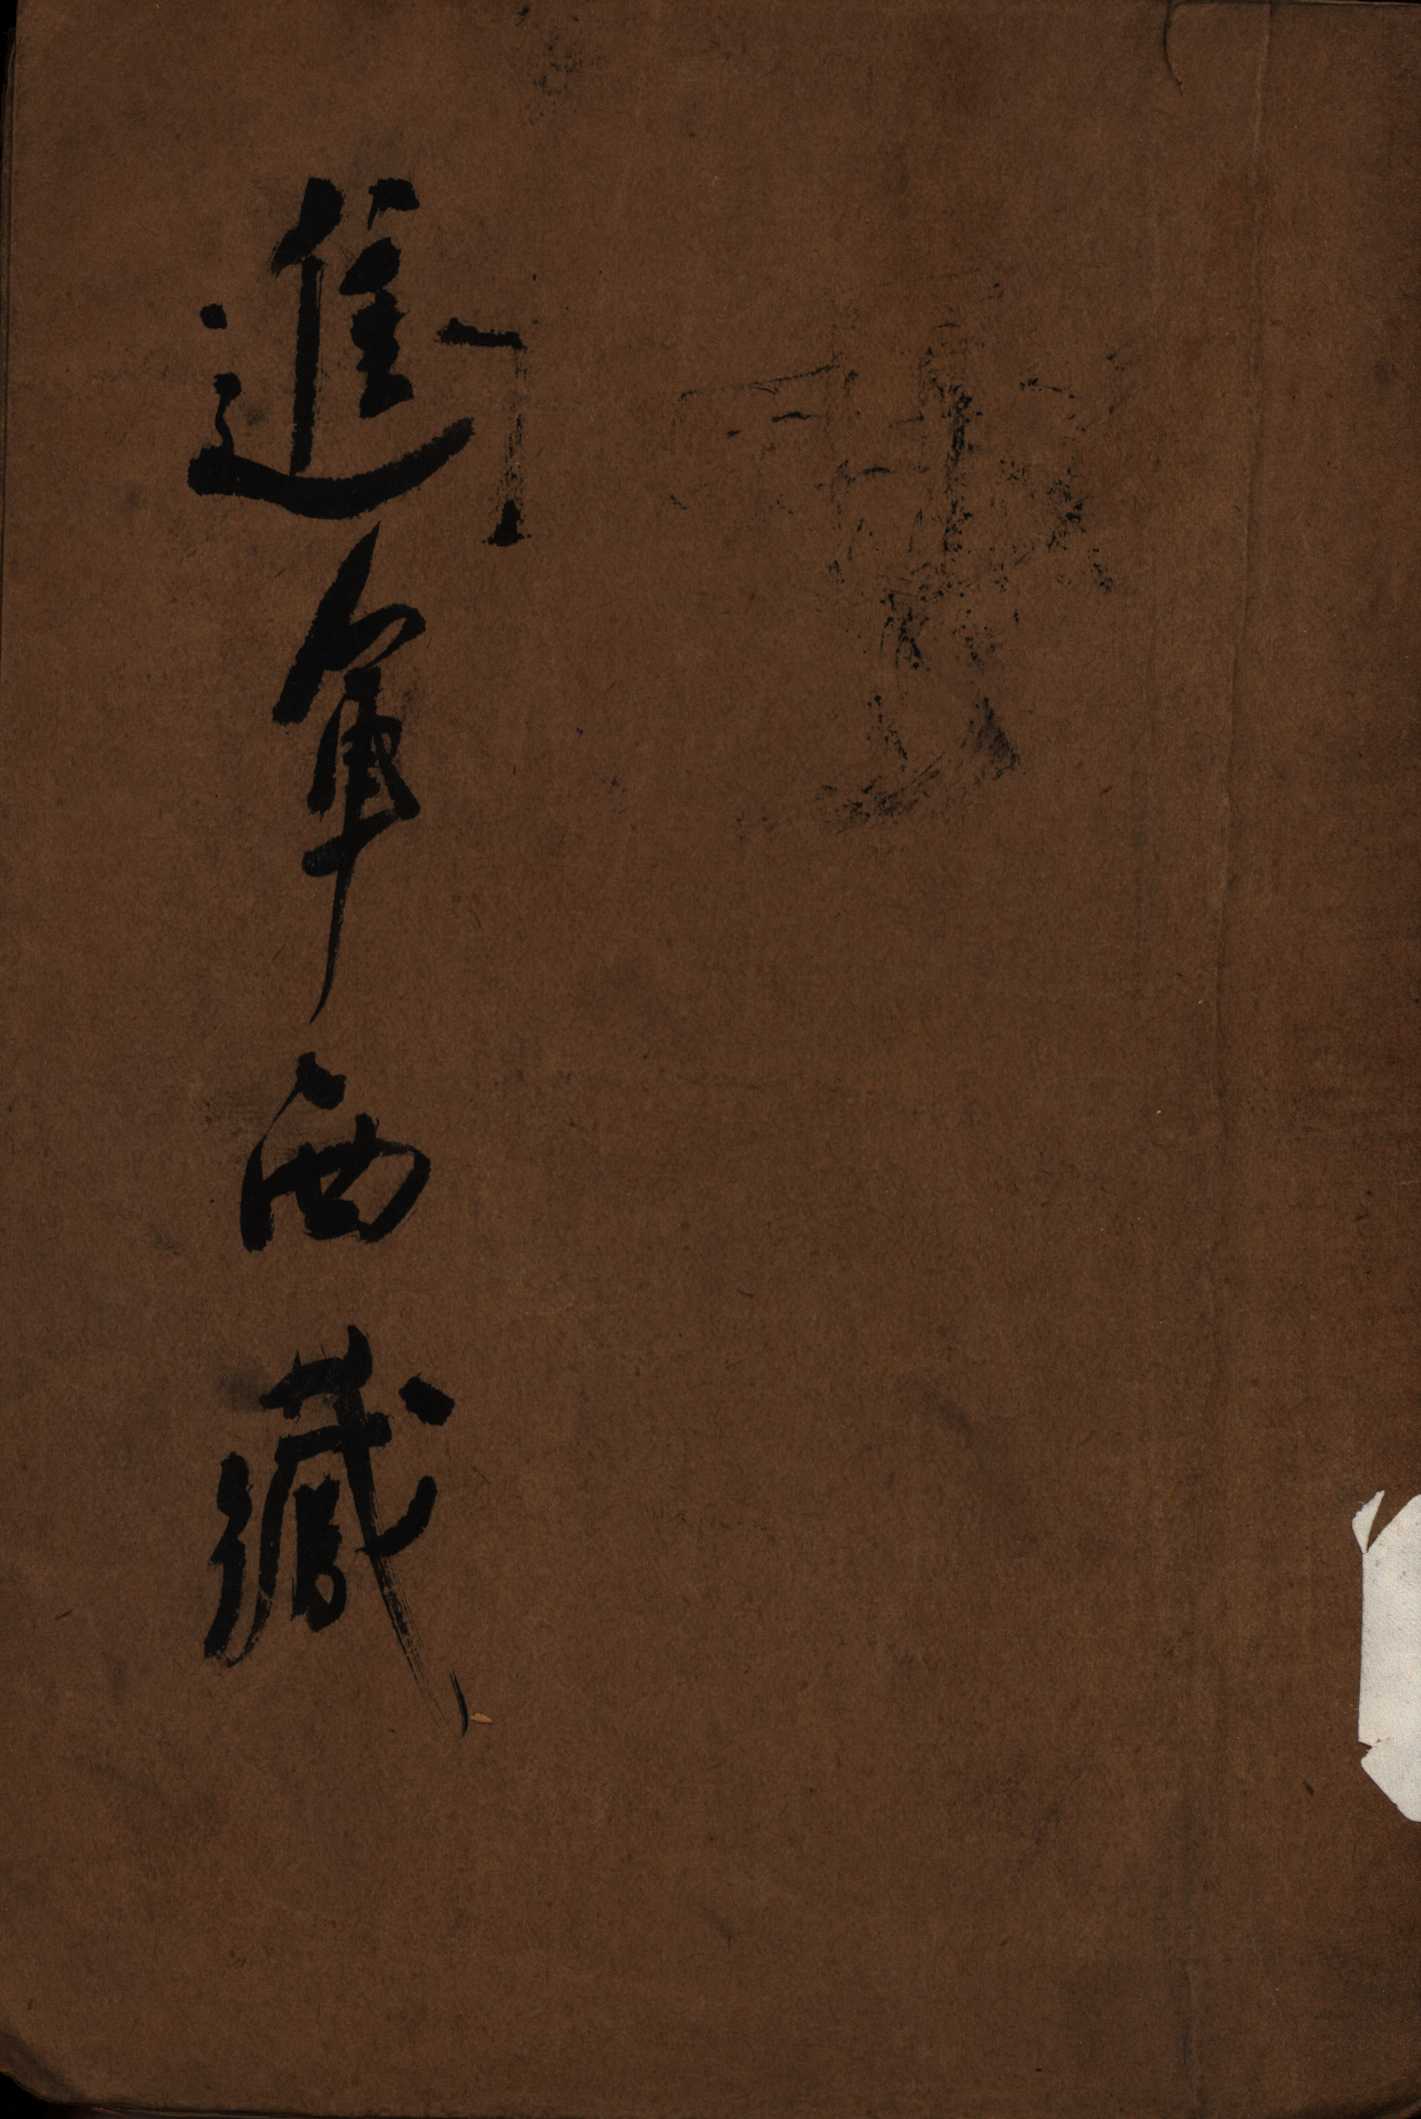 「進軍西藏